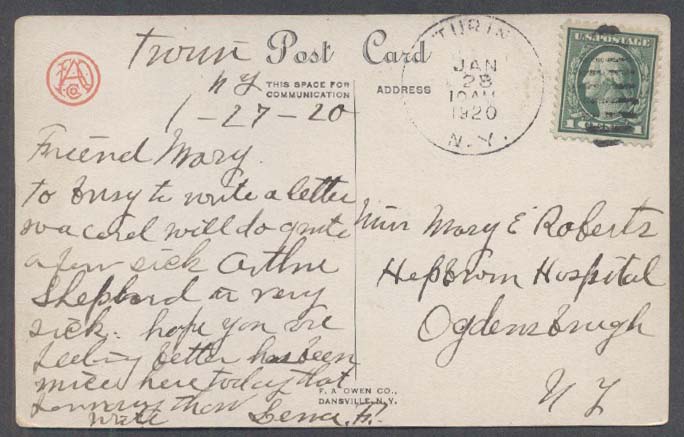 Post Card
THIS SPACE FOR
COMMUNICATION
ADDRESS
TURIN
JAN
28
10 AM
1920
N.Y.
U.S. POSTAGE
N Y
1-27-20
Friend Mary
to busy to write a letter
so a card will do quite
a few sick Arthur
Shepherd is very
sick. hope you are
feeling better has been
nice here today that
write Lena. F.
Miss Mary E Roberts
Hepbwin Hospital
Ogdensbrugh
N Y
F. A. OWEN CO.,
DANSVILLE, N.Y.